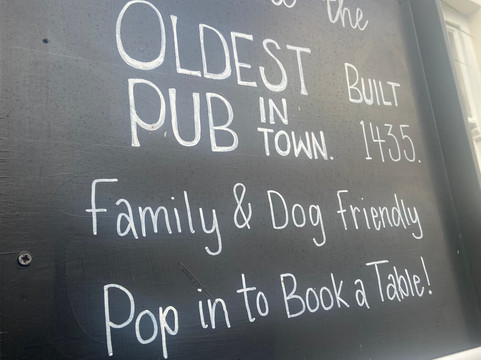 the
OLDEST
PUB IN TOWN. BUILT 1435.
Family & Dog Friendly
Pop in to Book a Table!